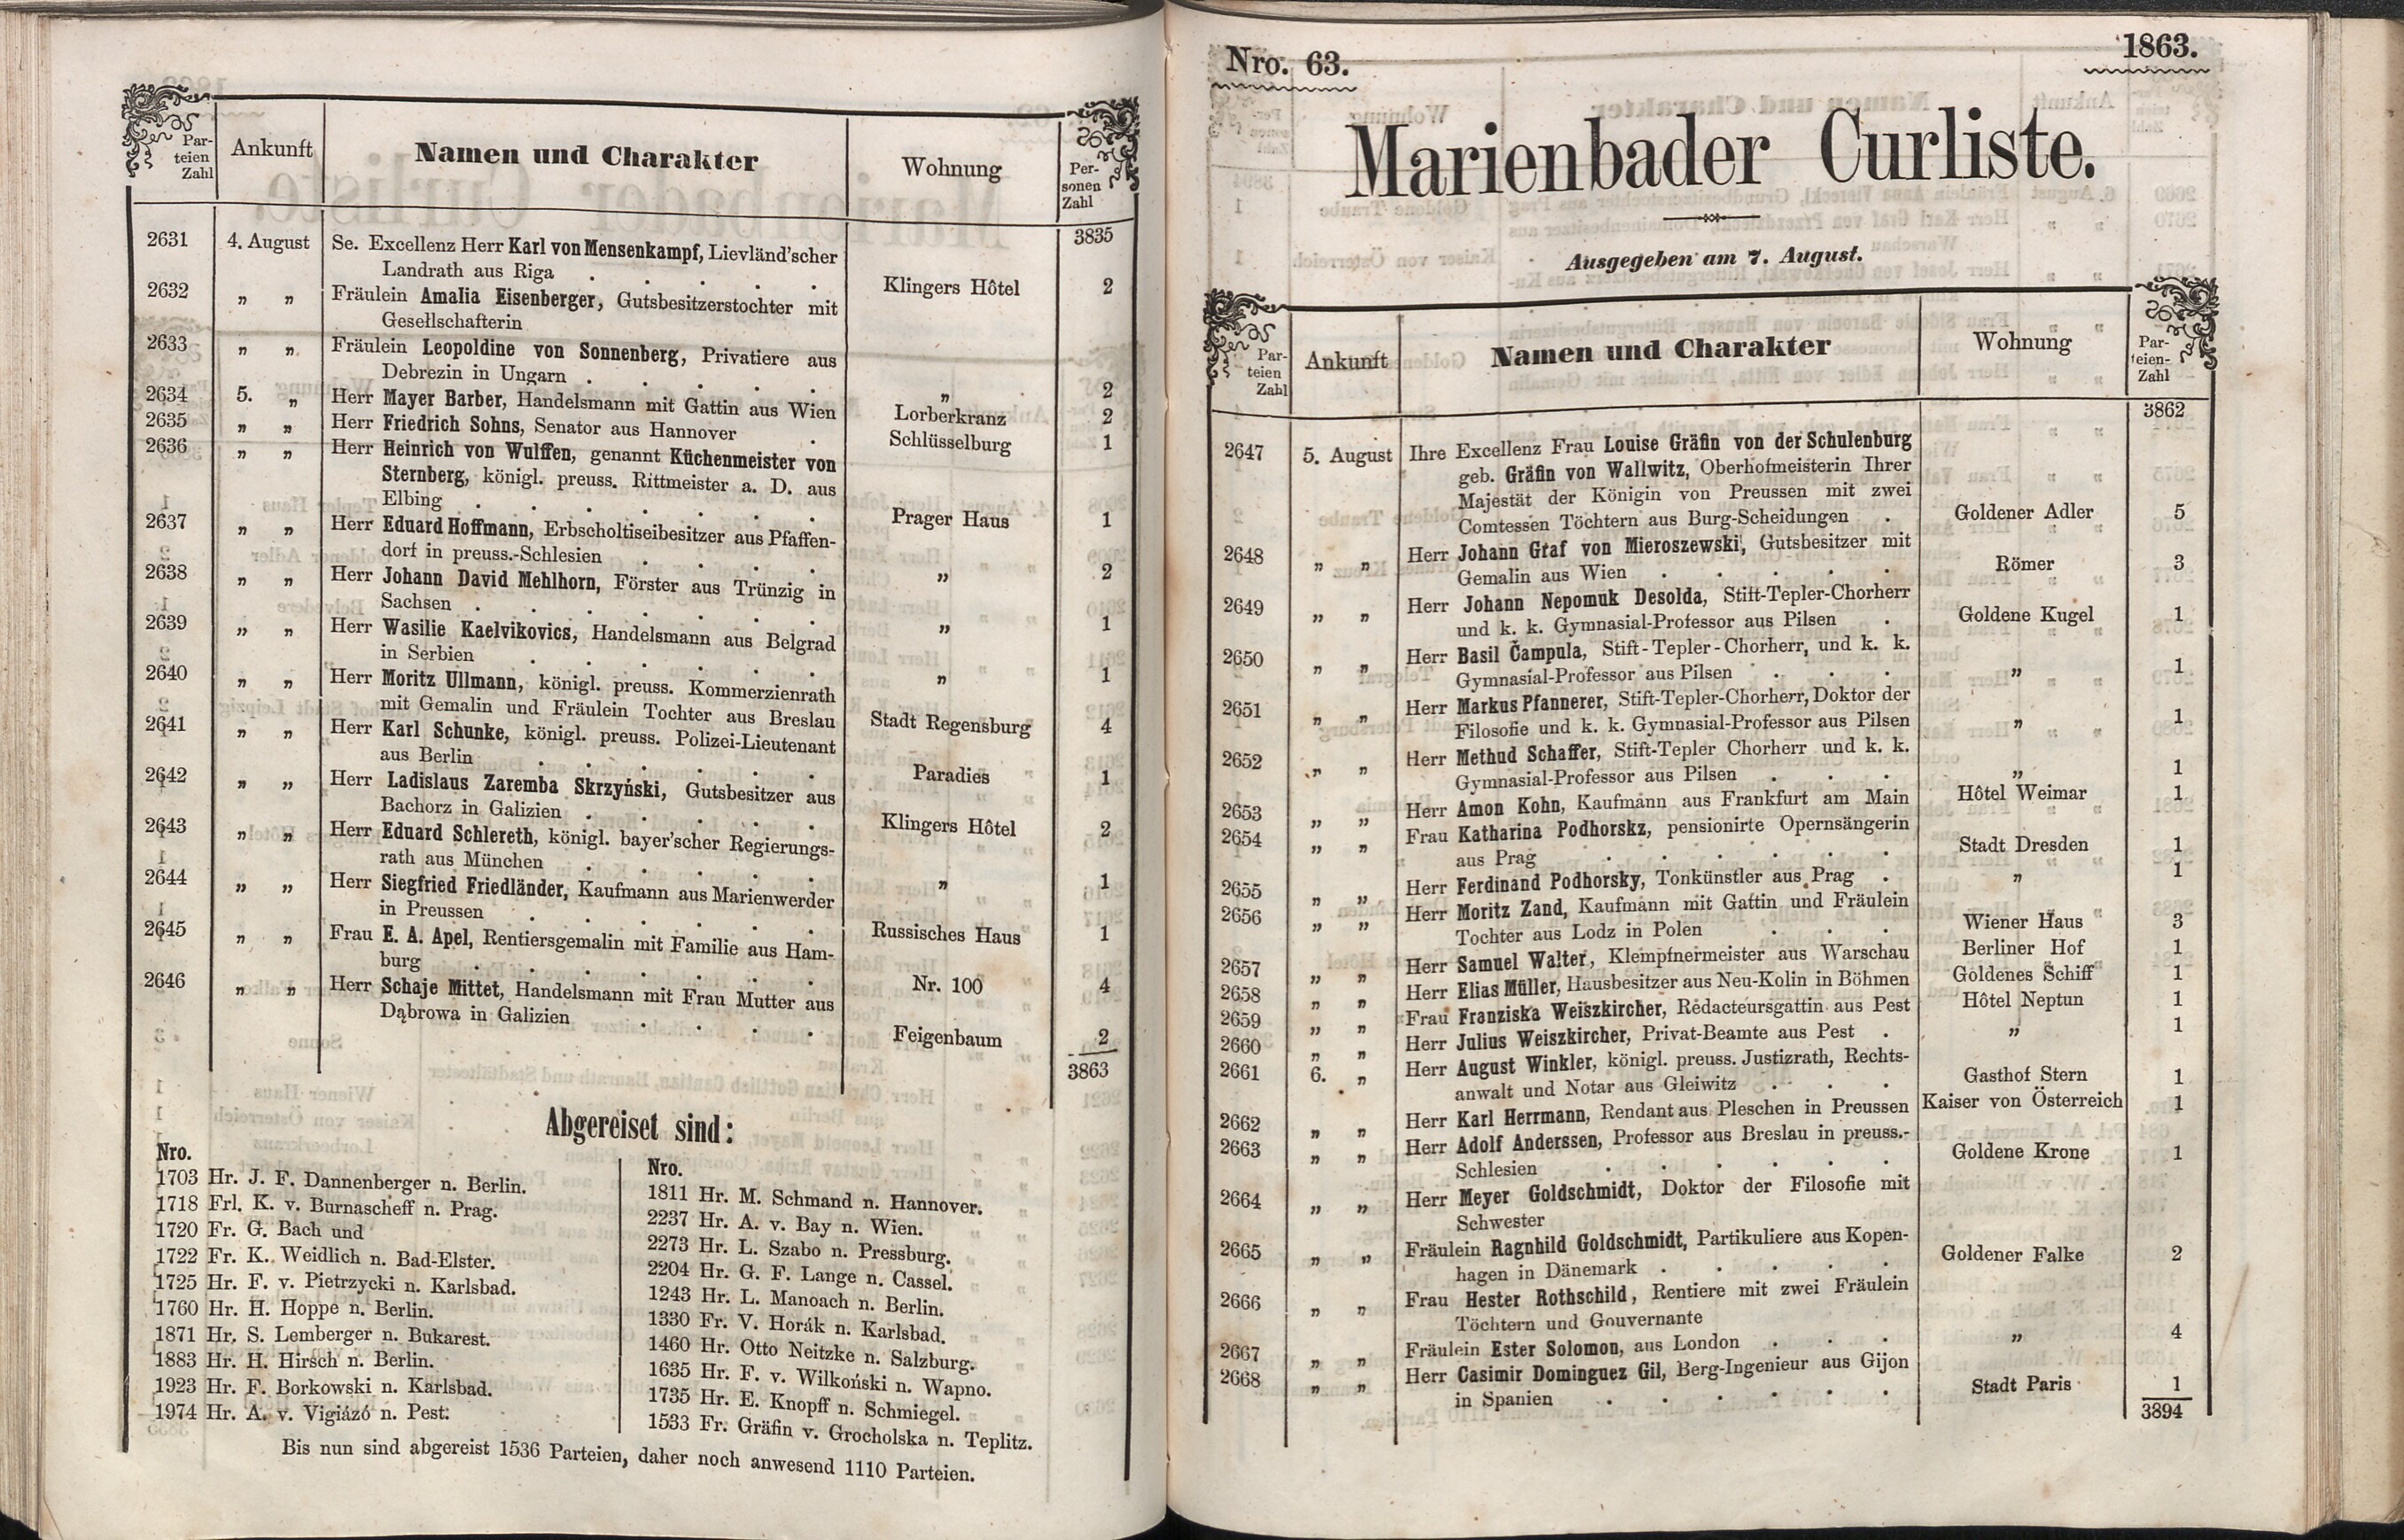 Par-
teien
Zahl
Ankunft
Namen und Charakter
Wohnung
Per-
sonen
Zahl
3835
2631 4. August Se. Excellenz Herr Karl von Mensenkampf, Lievländ'scher
Landrath aus Riga . . . . . Klingers Hôtel 2
2632 „ „ Fräulein Amalia Eisenberger, Gutsbesitzerstochter mit
Gesellschafterin
2633 „ „ Fräulein Leopoldine von Sonnenberg, Privatiere aus
Debrezin in Ungarn . . . . . „ 2
2634 5. „ Herr Mayer Barber, Handelsmann mit Gattin aus Wien Lorberkranz 2
2635 „ „ Herr Friedrich Sohns, Senator aus Hannover . Schlüsselburg 1
2636 „ „ Herr Heinrich von Wulffen, genannt Küchenmeister von
Sternberg, königl. preuss. Rittmeister a. D. aus
Elbing . . . . . . . Prager Haus 1
2637 „ „ Herr Eduard Hoffmann, Erbscholtiseibesitzer aus Pfaffen-
dorf in preuss.-Schlesien . . . . „ 2
2638 „ „ Herr Johann David Mehlhorn, Förster aus Trünzig in
Sachsen . . . . . . . „ 1
2639 „ „ Herr Wasilie Kaelvikovics, Handelsmann aus Belgrad
in Serbien . . . . . . „ 1
2640 „ „ Herr Moritz Ullmann, königl. preuss. Kommerzienrath
mit Gemalin und Fräulein Tochter aus Breslau Stadt Regensburg 4
2641 „ „ Herr Karl Schunke, königl. preuss. Polizei-Lieutenant
aus Berlin . . . . . . Paradies 1
2642 „ „ Herr Ladislaus Zaremba Skrzyński, Gutsbesitzer aus
Bachorz in Galizien . . . . . Klingers Hôtel 2
2643 „ „ Herr Eduard Schlereth, königl. bayer'scher Regierungs-
rath aus München . . . . . „ 1
2644 „ „ Herr Siegfried Friedländer, Kaufmann aus Marienwerder
in Preussen . . . . . . Russisches Haus 1
2645 „ „ Frau E. A. Apel, Rentiersgemalin mit Familie aus Ham-
burg . . . . . . . Nr. 100 4
2646 „ „ Herr Schaje Mittet, Handelsmann mit Frau Mutter aus
Dąbrowa in Galizien . . . . Feigenbaum 2
3863
Abgereiset sind:
Nro.
1703 Hr. J. F. Dannenberger n. Berlin.
1718 Frl. K. v. Burnascheff n. Prag.
1720 Fr. G. Bach und
1722 Fr. K. Weidlich n. Bad-Elster.
1725 Hr. F. v. Pietrzycki n. Karlsbad.
1760 Hr. H. Hoppe n. Berlin.
1871 Hr. S. Lemberger n. Bukarest.
1883 Hr. H. Hirsch n. Berlin.
1923 Hr. F. Borkowski n. Karlsbad.
1974 Hr. A. v. Vigiázó n. Pest.
Nro.
1811 Hr. M. Schmand n. Hannover.
2237 Hr. A. v. Bay n. Wien.
2273 Hr. L. Szabo n. Pressburg.
2204 Hr. G. F. Lange n. Cassel.
1243 Hr. L. Manoach n. Berlin.
1330 Fr. V. Horák n. Karlsbad.
1460 Hr. Otto Neitzke n. Salzburg.
1635 Hr. F. v. Wilkoński n. Wapno.
1735 Hr. E. Knopff n. Schmiegel.
1533 Fr. Gräfin v. Grocholska n. Teplitz.
Bis nun sind abgereist 1536 Parteien, daher noch anwesend 1110 Parteien.
Nro. 63. 1863.
Marienbader Curliste.
Ausgegeben am 7. August.
Par-
teien
Zahl
Ankunft
Namen und Charakter
Wohnung
Par-
teien-
Zahl
3862
2647 5. August Ihre Excellenz Frau Louise Gräfin von der Schulenburg
geb. Gräfin von Wallwitz, Oberhofmeisterin Ihrer
Majestät der Königin von Preussen mit zwei
Comtessen Töchtern aus Burg-Scheidungen . Goldener Adler 5
2648 „ „ Herr Johann Graf von Mieroszewski, Gutsbesitzer mit
Gemalin aus Wien . . . . . Römer 3
2649 „ „ Herr Johann Nepomuk Desolda, Stift-Tepler-Chorherr
und k. k. Gymnasial-Professor aus Pilsen . Goldene Kugel 1
2650 „ „ Herr Basil Čampula, Stift-Tepler-Chorherr, und k. k.
Gymnasial-Professor aus Pilsen . . . „ 1
2651 „ „ Herr Markus Pfannerer, Stift-Tepler-Chorherr, Doktor der
Filosofie und k. k. Gymnasial-Professor aus Pilsen „ 1
2652 „ „ Herr Methud Schaffer, Stift-Tepler Chorherr und k. k.
Gymnasial-Professor aus Pilsen . . . „ 1
2653 „ „ Herr Amon Kohn, Kaufmann aus Frankfurt am Main Hôtel Weimar 1
2654 „ „ Frau Katharina Podhorskz, pensionirte Opernsängerin
aus Prag . . . . . . Stadt Dresden 1
2655 „ „ Herr Ferdinand Podhorsky, Tonkünstler aus Prag . „ 1
2656 „ „ Herr Moritz Zand, Kaufmann mit Gattin und Fräulein
Tochter aus Lodz in Polen . . . Wiener Haus 3
2657 „ „ Herr Samuel Walter, Klempfnermeister aus Warschau Berliner Hof 1
2658 „ „ Herr Elias Müller, Hausbesitzer aus Neu-Kolin in Böhmen Goldenes Schiff 1
2659 „ „ Frau Franziska Weiszkircher, Rédacteursgattin aus Pest Hôtel Neptun 1
2660 „ „ Herr Julius Weiszkircher, Privat-Beamte aus Pest . „ 1
2661 6. „ Herr August Winkler, königl. preuss. Justizrath, Rechts-
anwalt und Notar aus Gleiwitz . . . Gasthof Stern 1
2662 „ „ Herr Karl Herrmann, Rendant aus Pleschen in Preussen Kaiser von Österreich 1
2663 „ „ Herr Adolf Anderssen, Professor aus Breslau in preuss.-
Schlesien . . . . . . Goldene Krone 1
2664 „ „ Herr Meyer Goldschmidt, Doktor der Filosofie mit
Schwester
2665 „ „ Fräulein Ragnhild Goldschmidt, Partikuliere aus Kopen-
hagen in Dänemark . . . . . Goldener Falke 2
2666 „ „ Frau Hester Rothschild, Rentiere mit zwei Fräulein
Töchtern und Gouvernante
2667 „ „ Fräulein Ester Solomon, aus London . . . „ 4
2668 „ „ Herr Casimir Dominguez Gil, Berg-Ingenieur aus Gijon
in Spanien . . . . . . Stadt Paris 1
3894